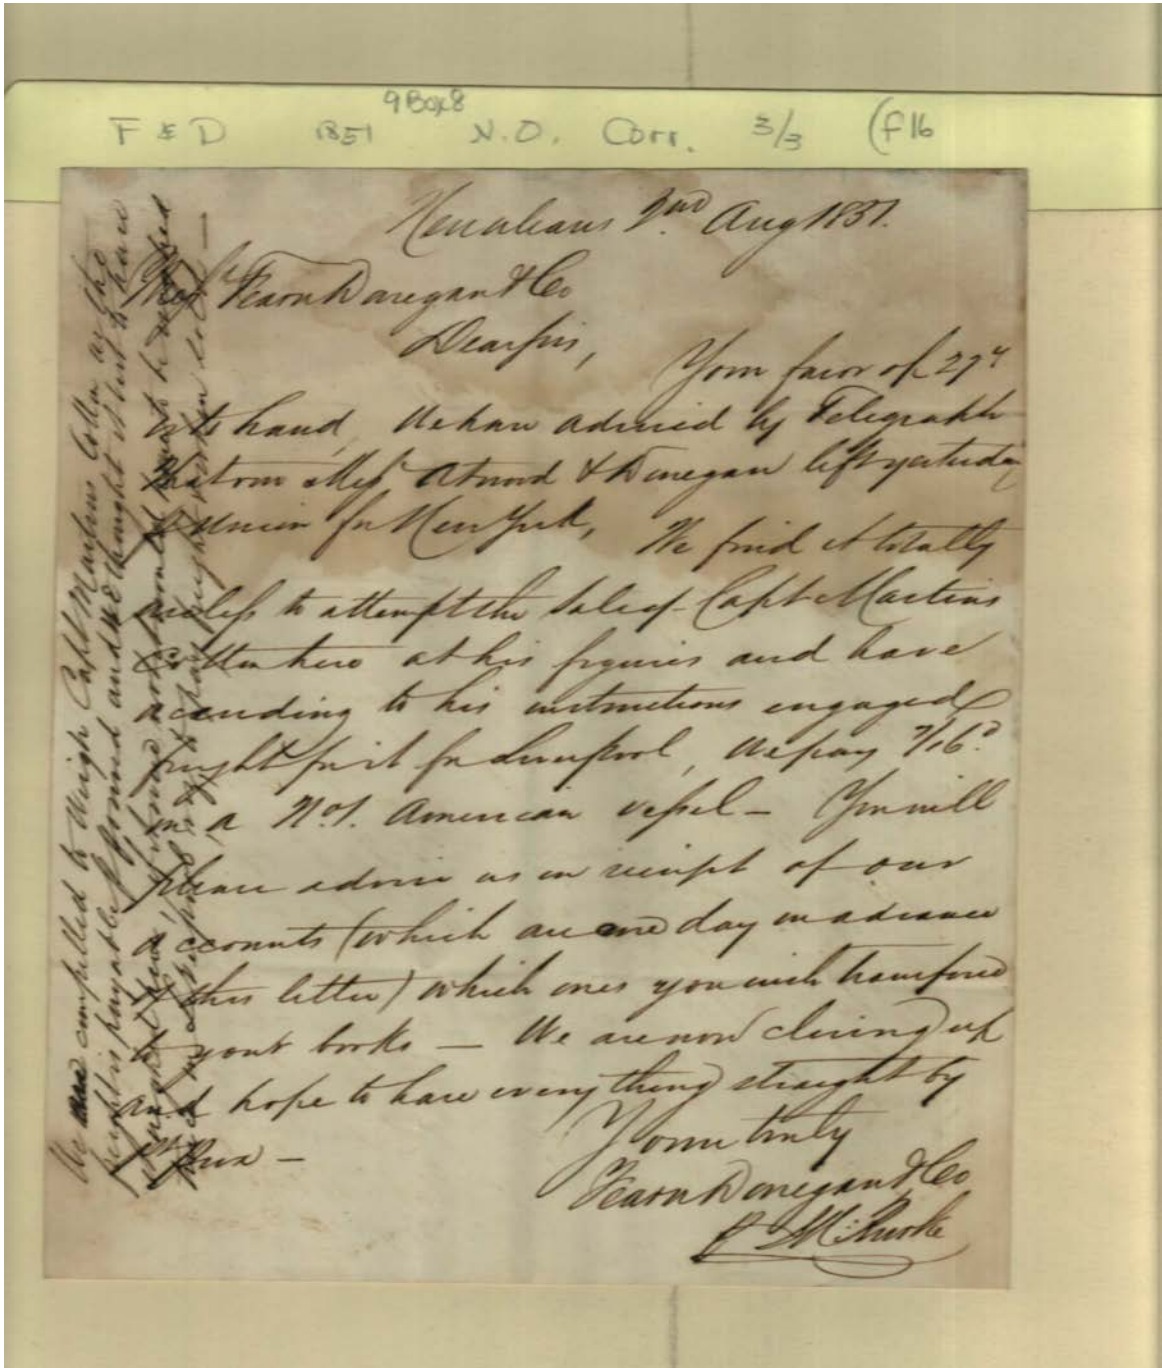 9 Box 8
F & D 1851 N.O. Corr. 3/3 (f16
Neworleans 2nd Aug 1851.
Messrs Fearn Donegan & Co
Dear sirs,
Your favor of 27th
is to hand, We have advised by Telegraph
that our Messrs Atwood & Donegan left yesterday
for New York, We find it totally
useless to attempt the sale of Capt Martins
Cotton here at his figures and have
according to his instructions engaged
freight for it for Liverpool, We pay 7/16d
in a No 1. American vessel – You will
please advise us on receipt of our
accounts (which are one day in advance
of this letter) which ones you wish transfered
to your books — We are now closing up
and hope to have everything straight by
Yours truly
Fearn Donegan & Co
We are compelled to weigh Capt Martins Cotton as the
freight is payable pr pound and we thought it best to have